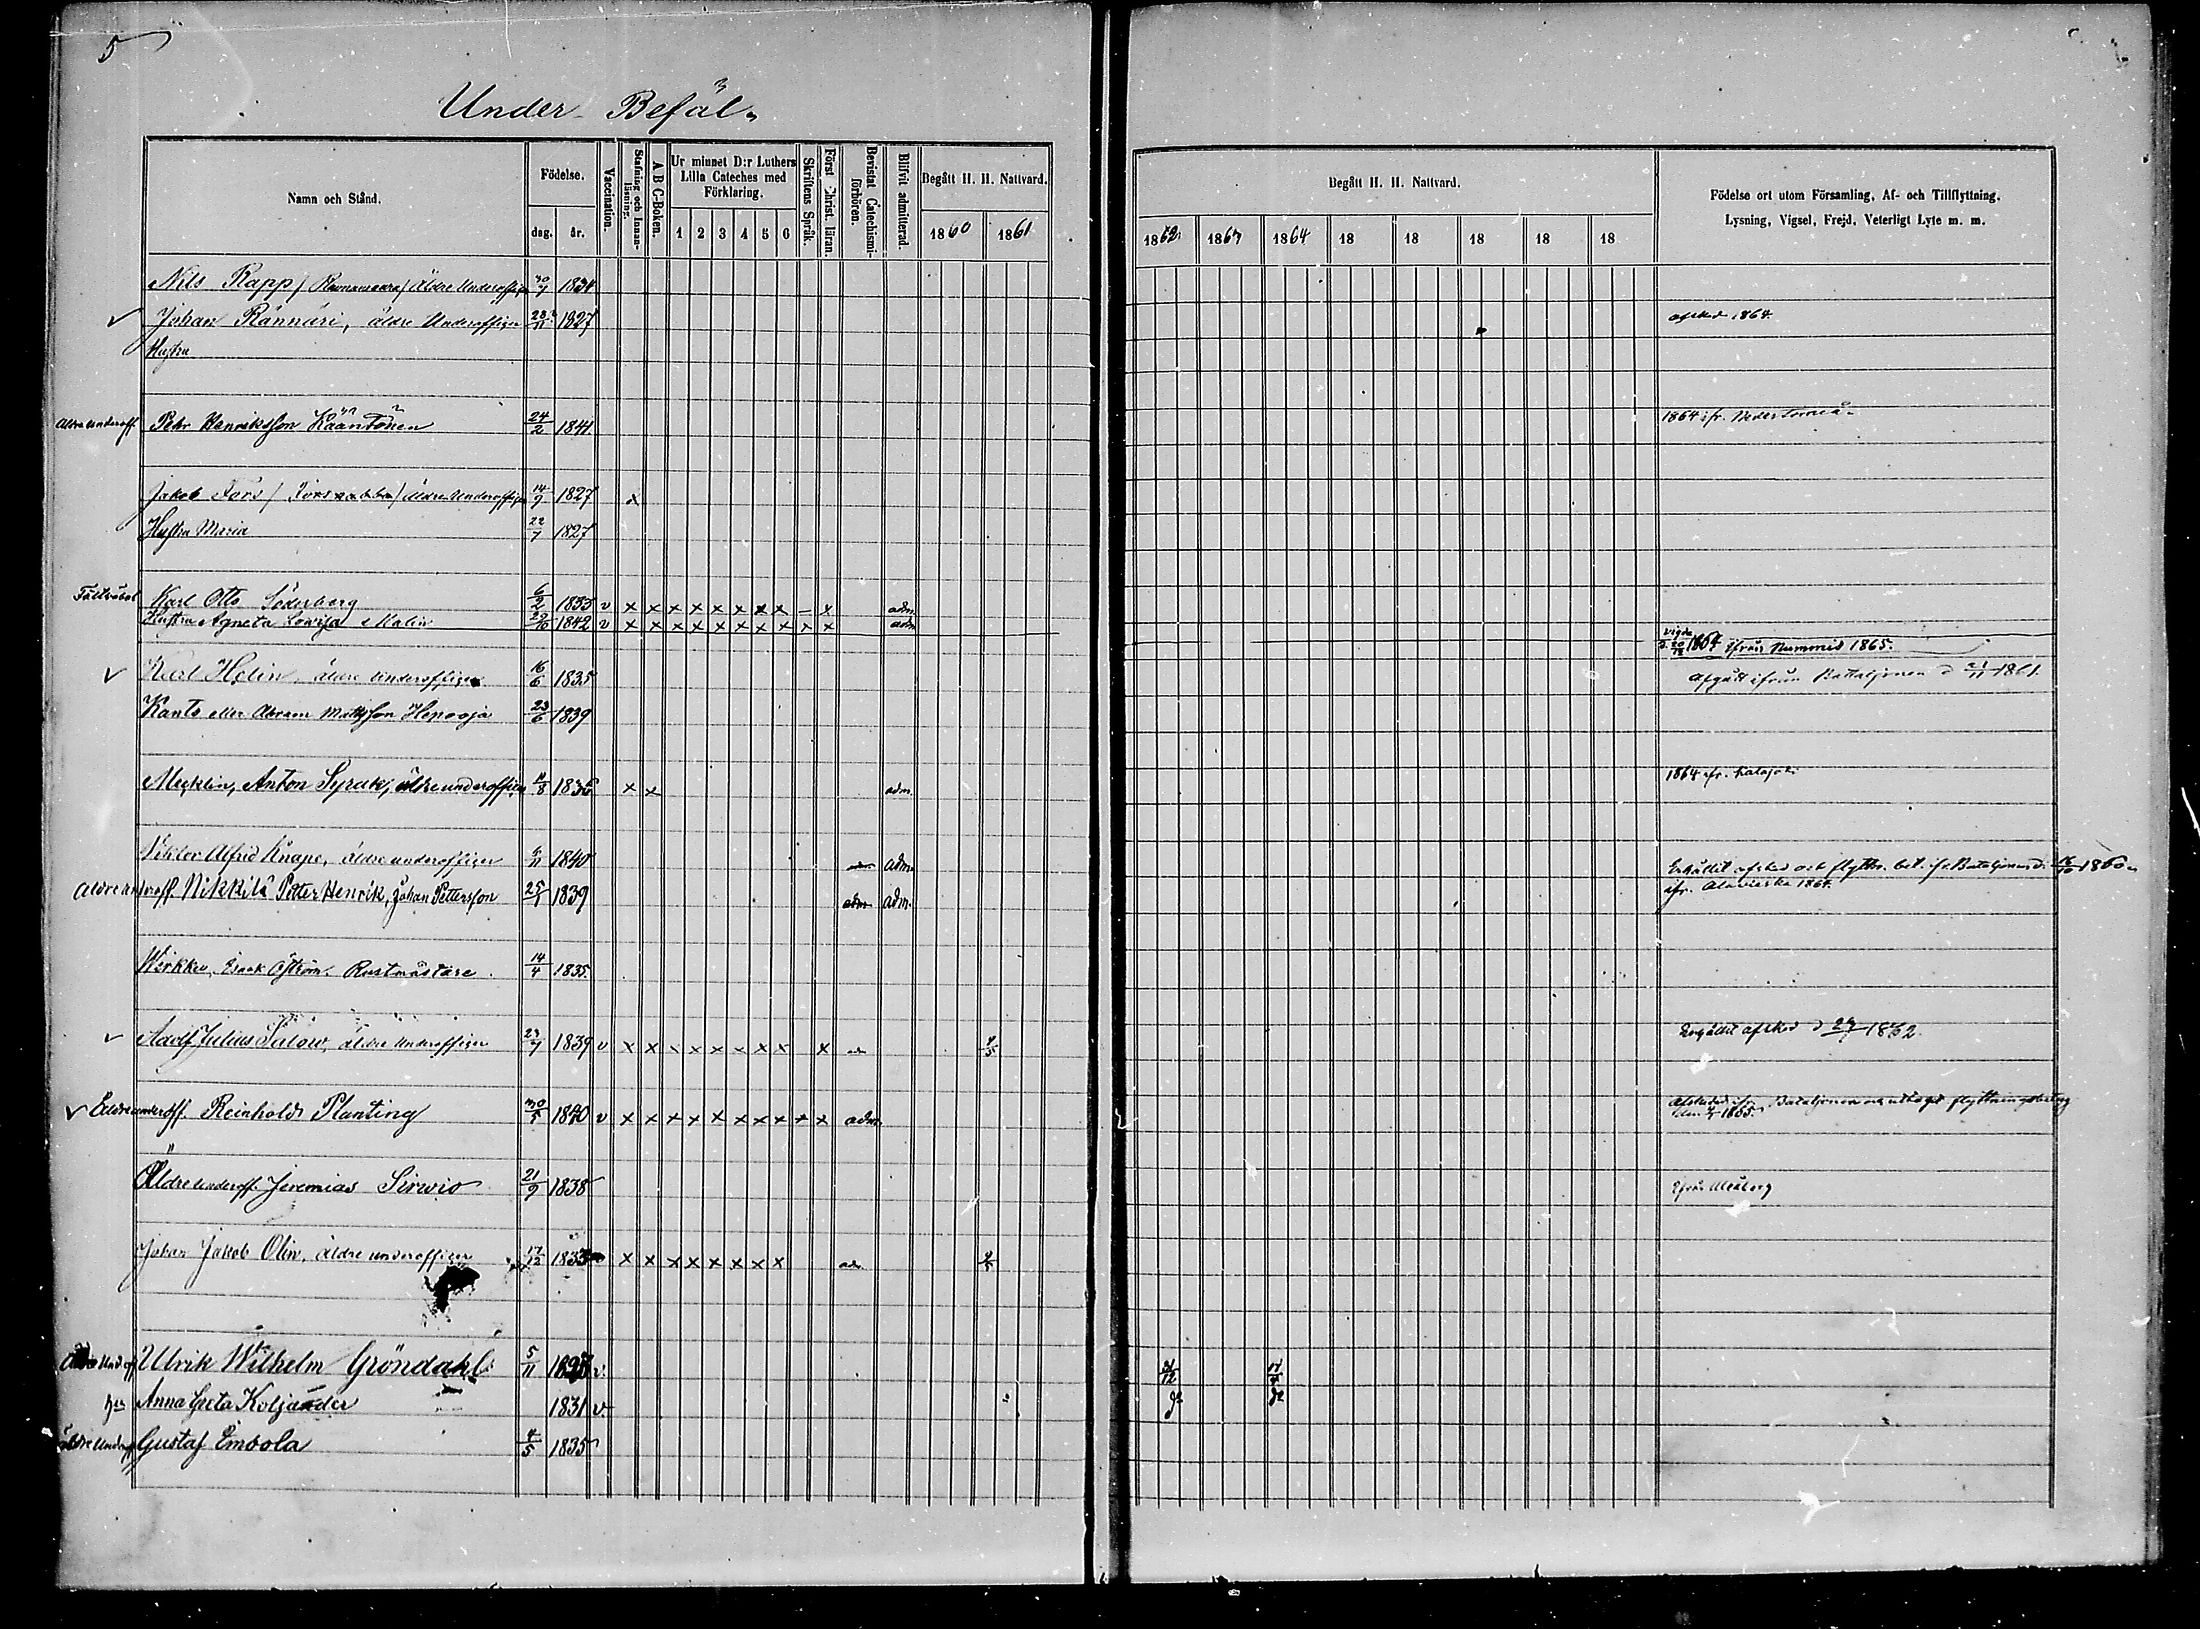 5
Under Befäl
Namn och Stånd.
Födelse.
dag.
år.
Vaccination.
Stafning och Innanläsning.
A B C-Boken.
Ur minnet D:r Luthers
Lilla Cateches med
Förklaring.
1 2 3 4 5 6
Skriftens Språk.
Först. Christ. läran.
Bevistat Catechismi-förhören.
Blifvit admitterad.
Begått H. H. Nattvard.
1860 1861
Begått H. H. Nattvard.
1862 1863 1864 18 18 18 18 18
Födelse ort utom Församling, Af- och Tillflyttning,
Lysning, Vigsel, Frejd, Veterligt Lyte m. m.
Nils Rapp / äldre Underofficer 1834
Johan Rännäri, äldre Underofficer 1827 afsked 1864.
Hustru
äldre underoff. Petr Henriksson Käantönen 24/2 1841 1864 ifr. Neder Torneå
Jakob Fors / äldre Underofficer 14/9 1827 x
Hustru Maria 22/7 1827
Fältväbel Karl Otto Söderberg 6/2 1833 v x x x x x x x x – x adm.
Hustru Agneta Lovisa Malin 1842 v x x x x x x x x x x adm
vigde 1864 ifrån Nummis 1865.
Karl Helin, äldre underofficer 16/6 1835 Afgått ifrån Bataljonen d 21/11 1861.
Kants eller Abram Mattsson Henooja 23/6 1839
Mecklin, Anton Syrak, äldre underofficer 1836 x x adm. 1864 ifr. Kalajoki
Viktor Alfrid Knape, äldre underofficer 1840 adm. Erhållit afsked och flyttn. bet. ifr. Bataljonen d. 16/10 1860
Äldre underoff. Nikkilä Petter Henrik, Johan Pettersson 25/1 1839 adm. adm. ifr. Alavieska 1864.
Wirkku, Isaak Öström. Rustmästare. 14/4 1835.
Adolf Julius Salow, äldre Underofficer 1839 v x x x x x x x x x Erhållit afsked d 1862.
Äldre underoff. Reinhold Planting 30/5 1840 v x x x x x x x x x x adm. Afskedad ifr. Bataljonen och uttagit flyttningsbetyg
den 1865.
Äldre Underoff. Jeremias Sirwio 21/9 1838 Ifrån Uleåborg
Johan Jakob Olin, äldre underofficer 17/12 1833 x x x x x x x x
Äldre Und.off. Ulrik Wilhelm Gröndahl 5/11 v.
Anna Greta Koljander 1831 v.
äldre Undroff Gustaf Embola 4/5 1835